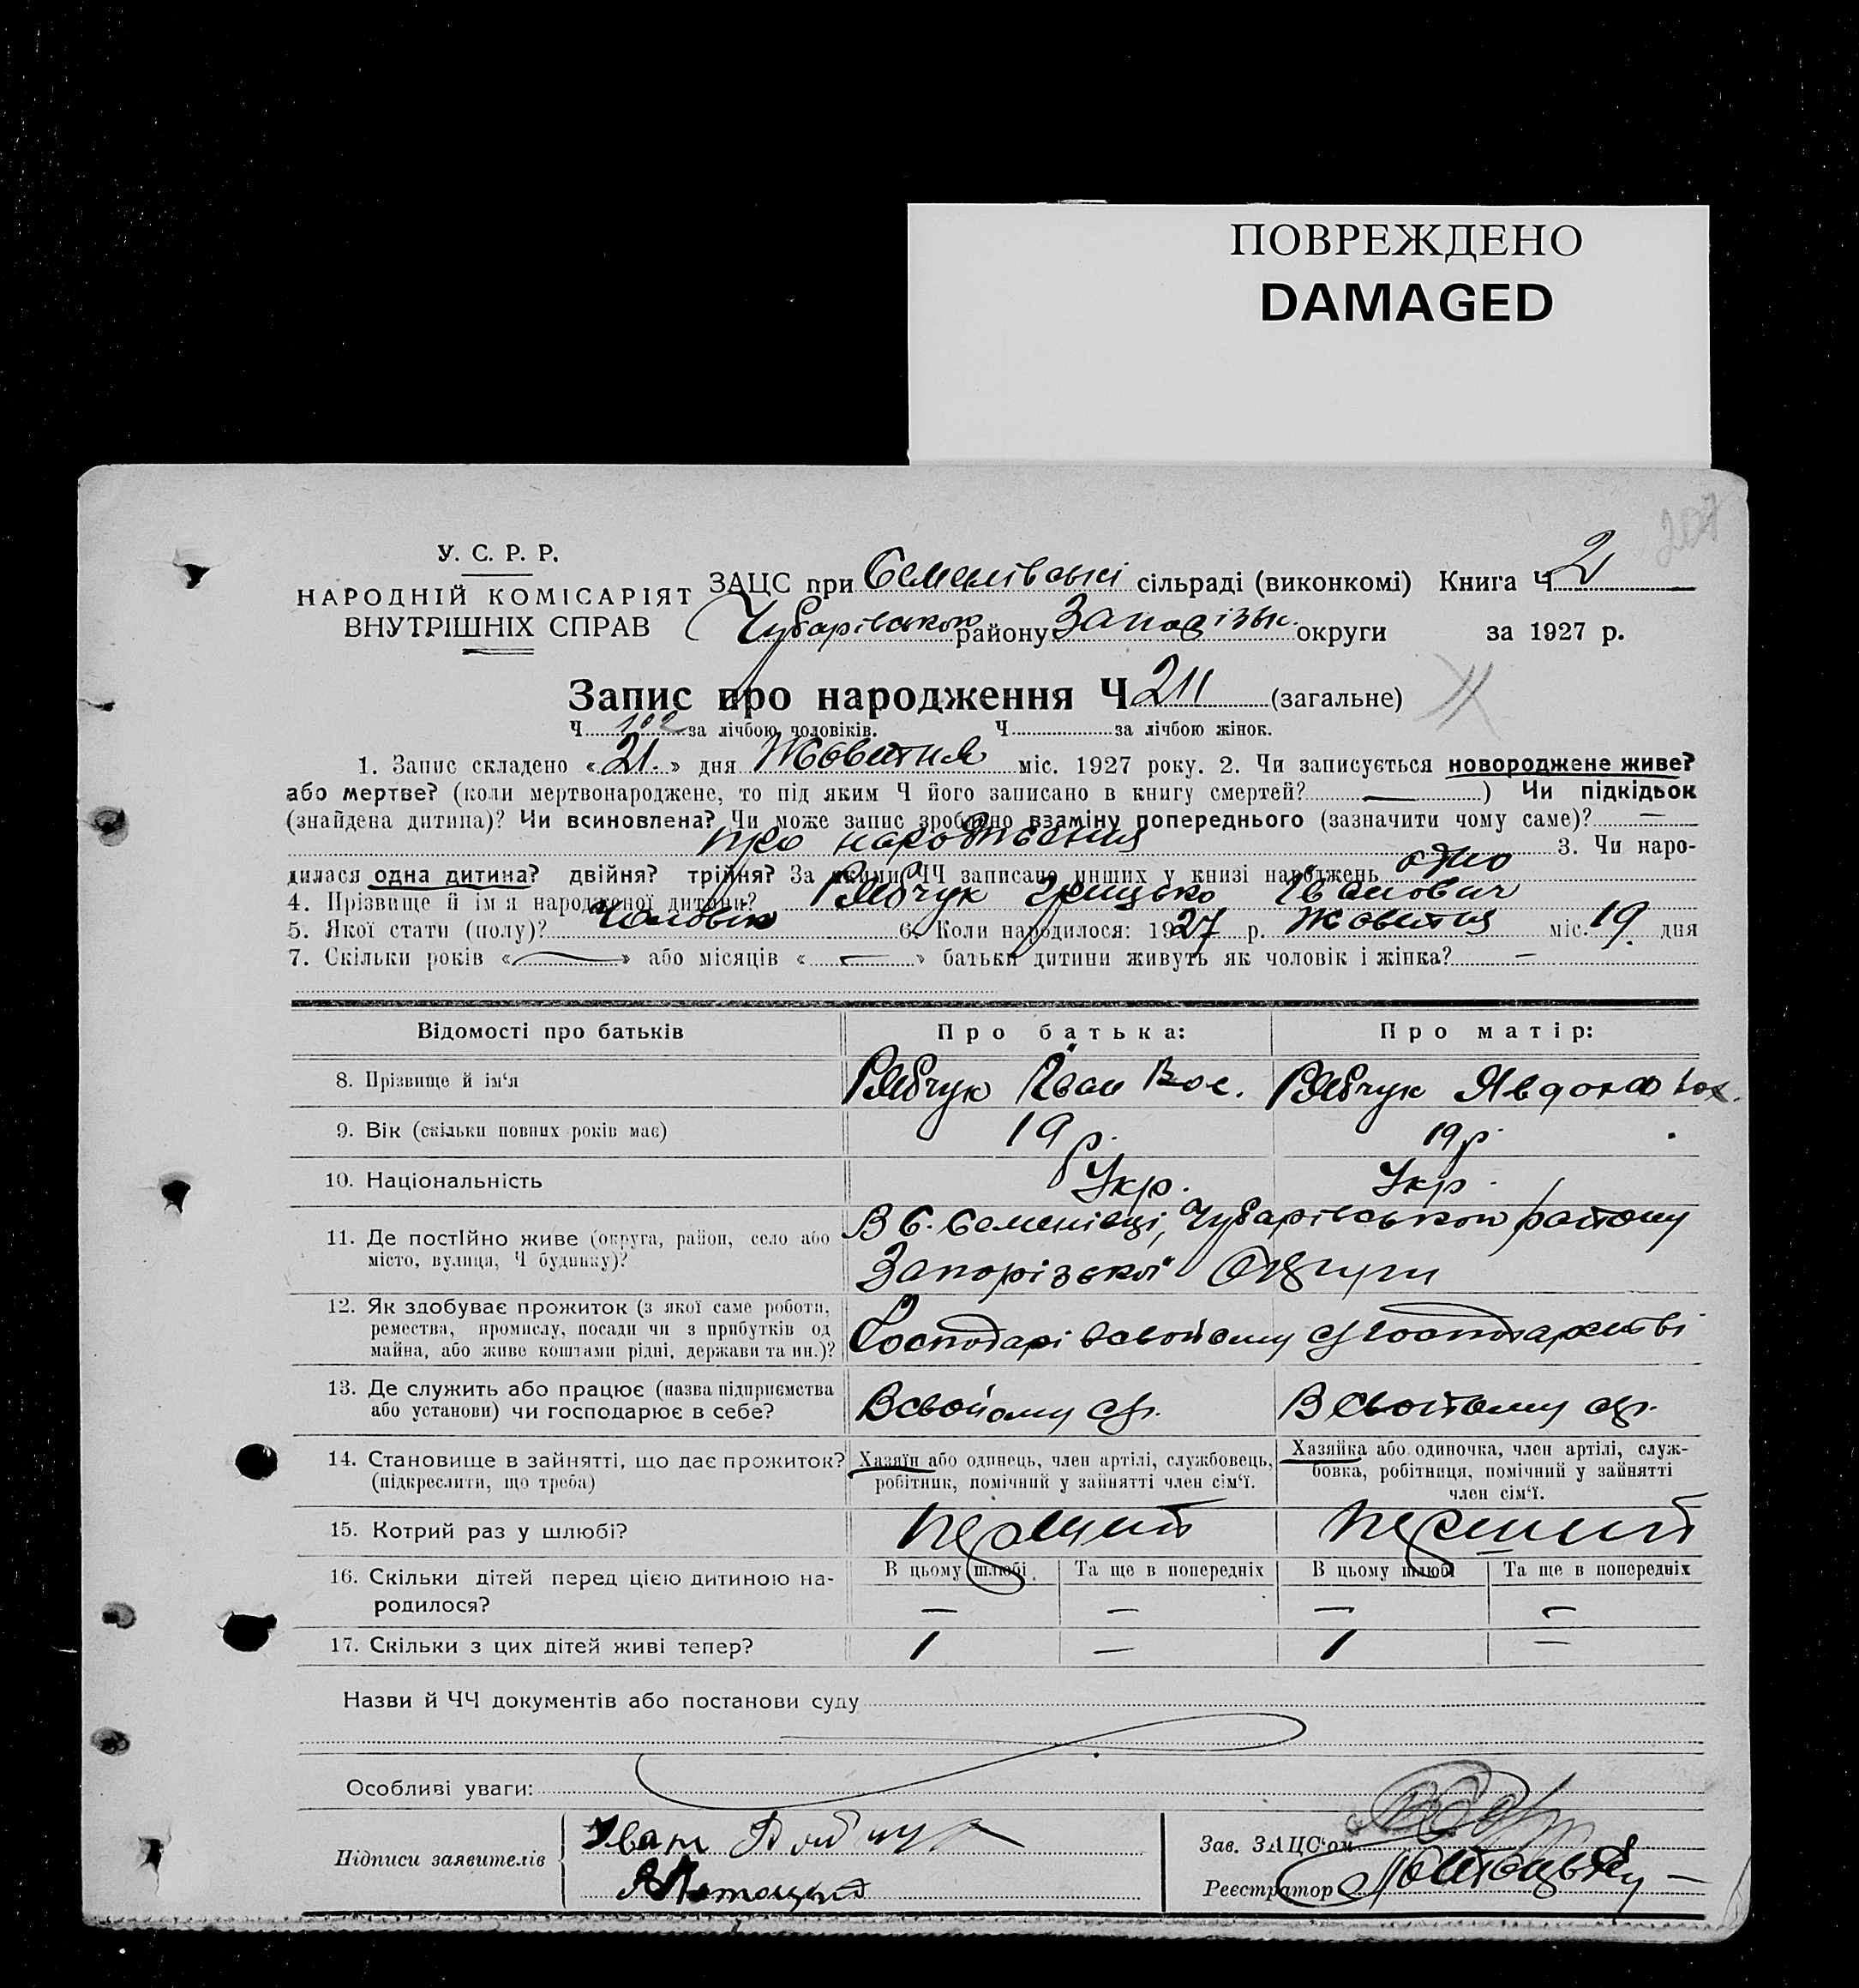 ПОВРЕЖДЕНО
DAMAGED
207
У. С. Р. Р.
НАРОДНІЙ КОМІСАРІЯТ
ВНУТРІШНІХ СПРАВ
ЗАЦС при Семенівські сільраді (виконкомі) Книга Ч 2
Чубарівського району Запорізьк. округи за 1927 р.
Запис про народження Ч 211 (загальне)
Ч 102 за лічбою чоловіків. Ч за лічбою жінок.
1. Запис складено «21.» дня Жовтня міс. 1927 року. 2. Чи записується новороджене живе?
або мертве? (коли мертвонароджене, то під яким Ч його записано в книгу смертей? —) Чи підкідьок
(знайдена дитина)? Чи всиновлена? Чи може запис зроблено взаміну попереднього (зазначити чому саме)? —
про народження 3. Чи наро-
дилася одна дитина? двійня? трійня? За якими ЧЧ записано инших у книзі народжень одно
4. Прізвище й ім'я народженої дитини? Рябчук Грицько Іванович
5. Якої стати (полу)? Чоловік 6. Коли народилося: 1927 р. Жовтня міс. 19 дня
7. Скільки років «—» або місяців «—» батьки дитини живуть як чоловік і жінка? —
Відомості про батьків Про батька: Про матір:
8. Прізвище й ім'я Рябчук Іван Рябчук Явдоха
9. Вік (скільки повних років має) 19 р. 19 р.
10. Національність Укр. Укр.
11. Де постійно живе (округа, район, село або
місто, вулиця, Ч будинку)?
В с. Семенівці, Чубарівського району
Запорізької Округи
12. Як здобуває прожиток (з якої саме роботи,
ремества, промислу, посади чи з прибутків од
майна, або живе коштами рідні, держави та ин.)?
Господарі в свойому с/господарстві
13. Де служить або працює (назва підприємства
або установи) чи господарює в себе?
В свойому с/г. В свойому с/г.
14. Становище в зайнятті, що дає прожиток?
(підкреслити, що треба)
Хазяїн або одинець, член артілі, службовець,
робітник, помічний у зайнятті член сім'ї.
Хазяйка або одиночка, член артілі, служ-
бовка, робітниця, помічний у зайнятті
член сім'ї.
15. Котрий раз у шлюбі? перший перший
16. Скільки дітей перед цією дитиною на-
родилося?
В цьому шлюбі Та ще в попередніх В цьому шлюбі Та ще в попередніх
— — — —
17. Скільки з цих дітей живі тепер? 1 — 1 —
Назви й ЧЧ документів або постанови суду
Особливі уваги:
Підписи заявителів Іван Рябчук
Зав. ЗАЦС'ом
Реестратор